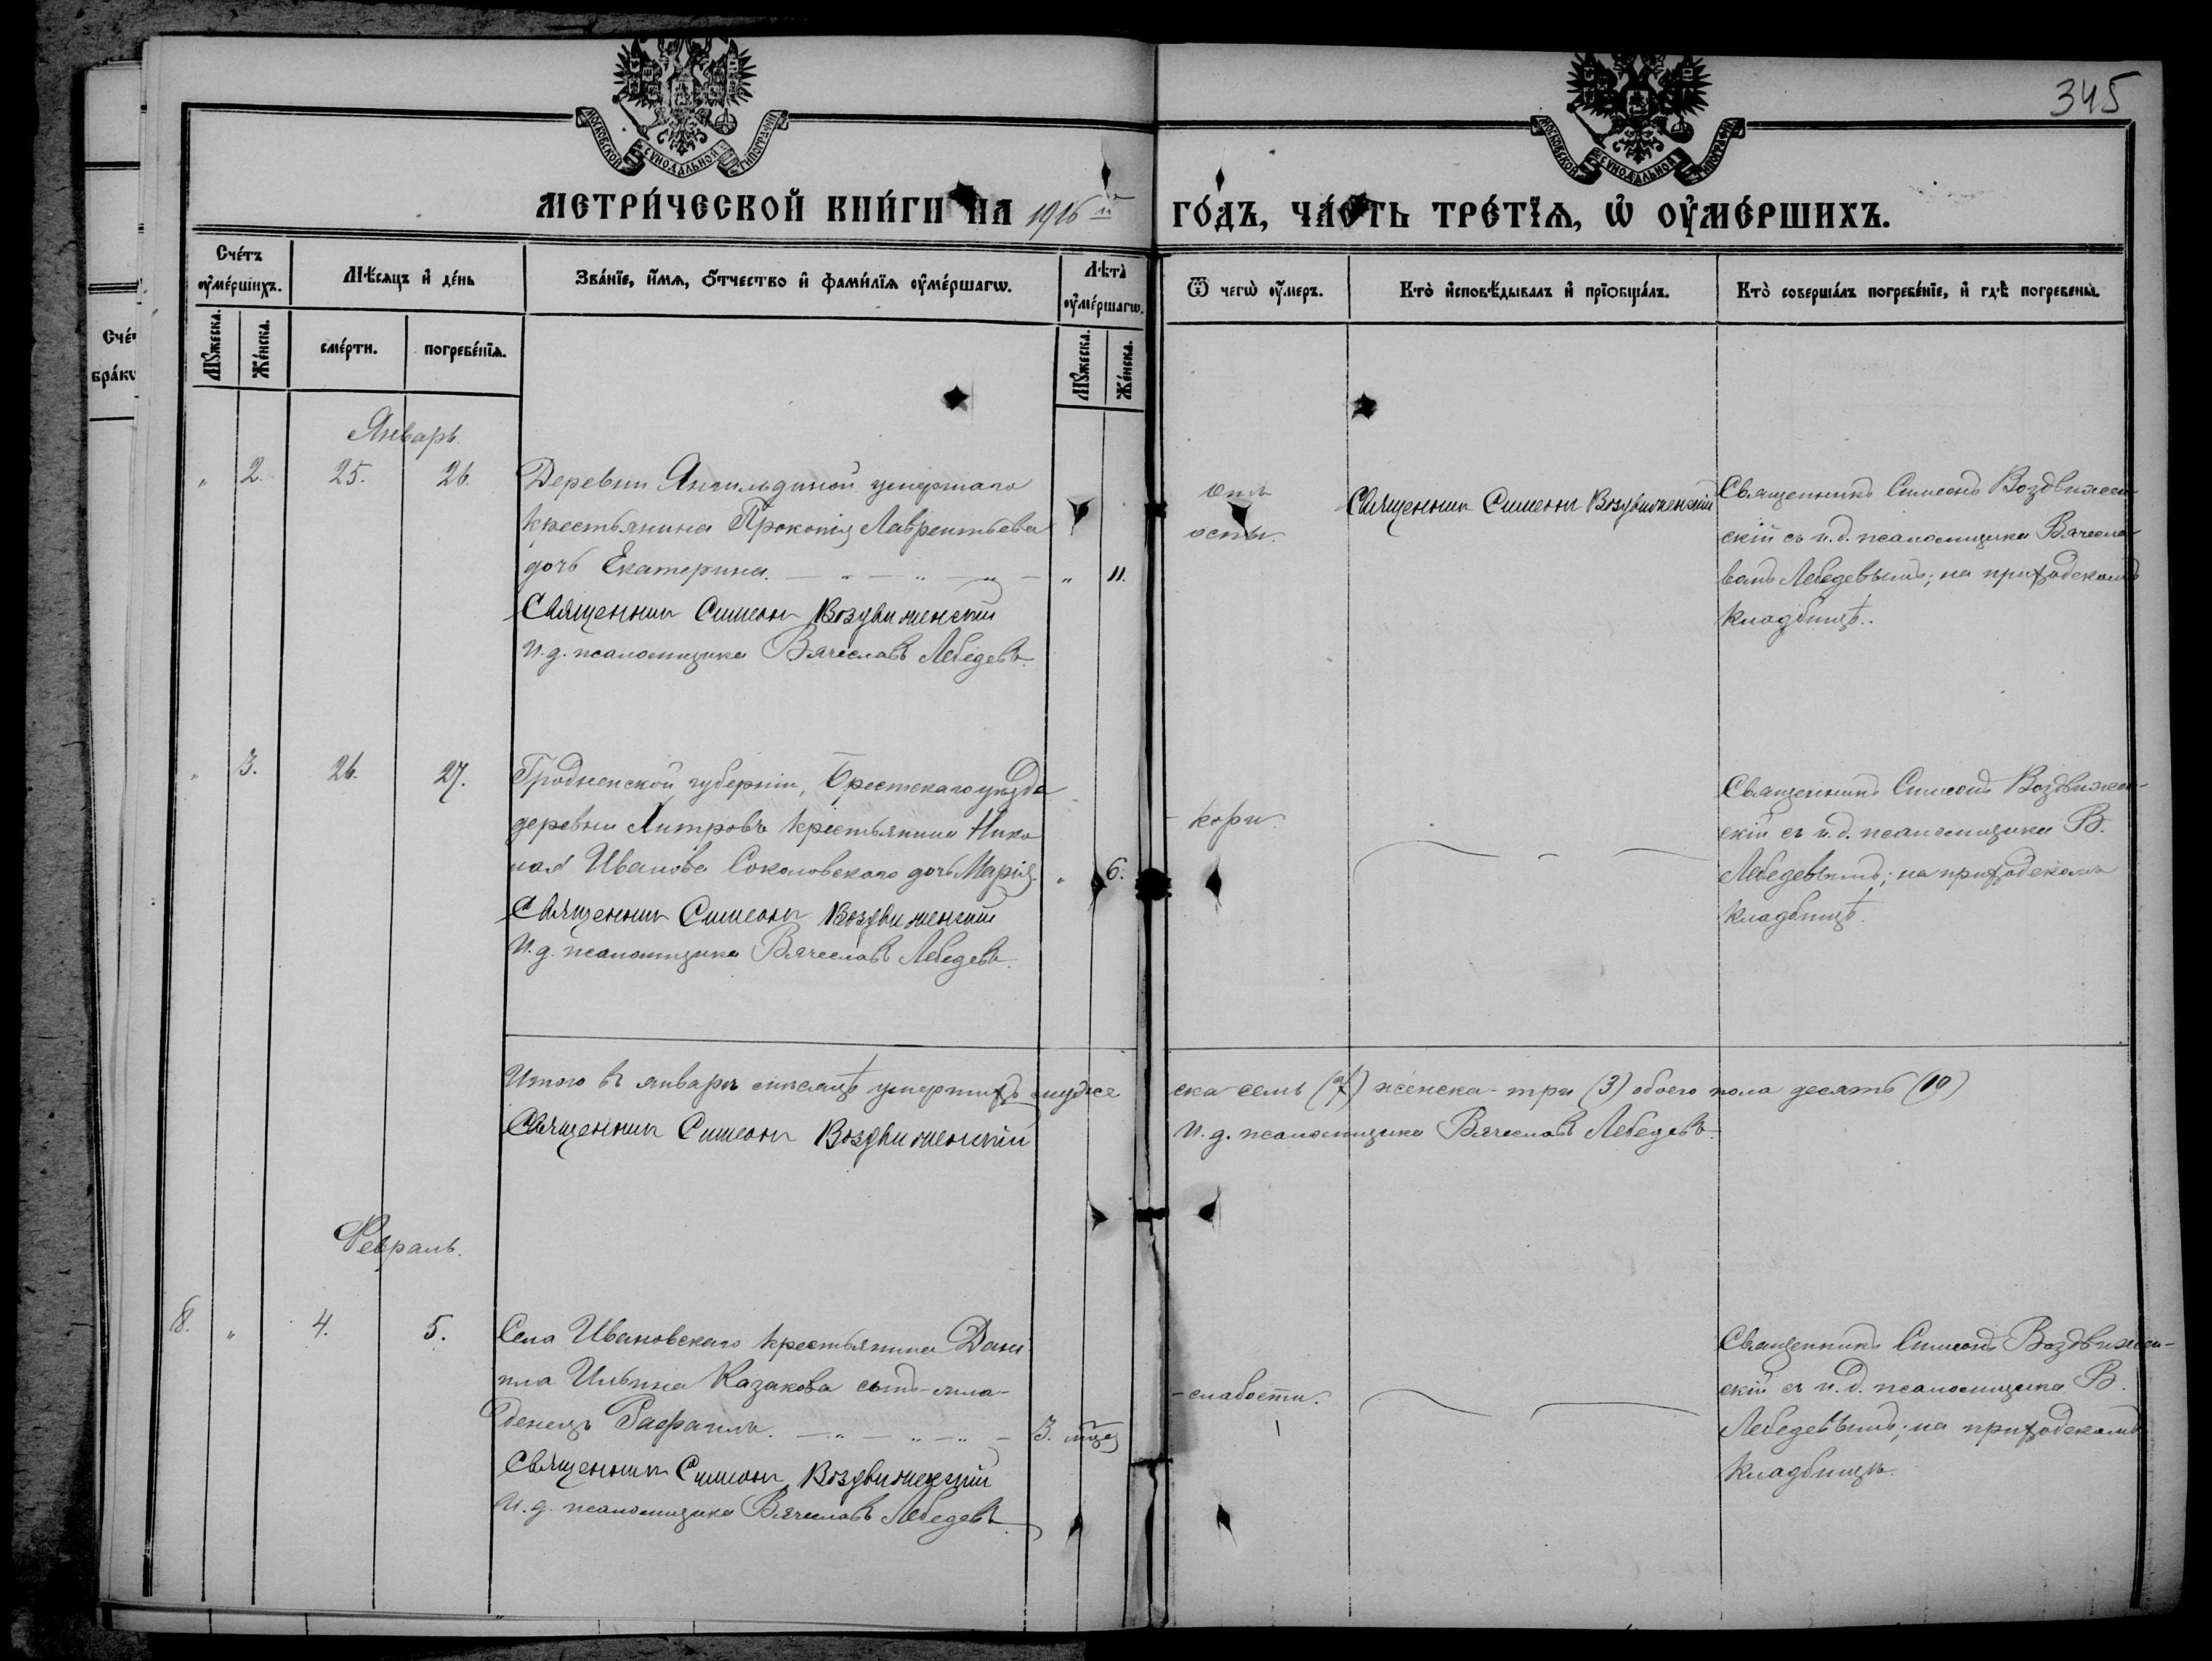 345
МОСКОВСКОЙ СѴНОДАЛЬНОЙ ТИПОГРАФІИ
МОСКОВСКОЙ СѴНОДАЛЬНОЙ ТИПОГРАФІИ
МЕТРИ́ЧЕСКОЙ КНИ́ГИ НА 1916 й ГО́ДЪ, ЧА́СТЬ ТРЕ́ТЇѦ, Ѡ҆ ОУ҆МЕ́РШИХЪ.
Сче́тъ оу҆ме́ршихъ.
Мꙋ́жеска.
Же́нска.
Мѣ́сѧцъ и҆ де́нь
сме́рти.
погребе́нїѧ.
Зва́нїе, и҆́мѧ, ѻ҆́тчество и҆ фами́лїѧ оу҆ме́ршагѡ.
Лѣ́та оу҆ме́ршагѡ.
Мꙋ́жеска.
Же́нска.
Ѿ чегѡ̀ оу҆́меръ.
Кто̀ и҆сповѣ́дывалъ и҆ прїѡбща́лъ.
Кто̀ соверша́лъ погребе́нїе, и҆ гдѣ̀ погребены̀.
Январь.
" 2. 25. 26.
Деревни умершаго
крестьянина Прокопія Лаврентьева
дочь Екатерина. — " — " — " — " 11.
Священник Симеон Воздвиженский
И.д. псаломщика Вячеславъ Лебедевъ.
отъ
оспы.
Священник Симеон Воздвиженский
Священникъ Симеонъ Воздвижен-
скій съ и.д. псаломщика Вячесла-
вомъ Лебедевымъ; на приходскомъ
кладбищѣ.
" 3. 26. 27.
Гродненской губерніи, Брестскаго уѣзда
деревни крестьянина Нико
лая Иванова Соколовскаго дочь Марія. " 6.
Священник Симеон Воздвиженский
И.д. псаломщика Вячеславъ Лебедевъ.
кори.
Священникъ Симеонъ Воздвижен-
скій съ и.д. псаломщика В.
Лебедевымъ; на приходскомъ
кладбищѣ.
Итого въ январѣ мѣсяцѣ умершихъ муже
ска семь (7) женска - три (3) обоего пола десять (10)
Священник Симеон Воздвиженский
И.д. псаломщика Вячеславъ Лебедевъ.
Февраль.
8. " 4. 5.
Села Ивановскаго крестьянина Дані
ила Ильина Казакова сынъ-мла-
денецъ Рафаилъ. — " — " — " — 3. мѣсяц
Священник Симеон Воздвиженский
И.д. псаломщика Вячеславъ Лебедевъ.
-слабости.
Священникъ Симеонъ Воздвижен-
скій съ и.д. псаломщика В.
Лебедевымъ; на приходскомъ
кладбищѣ.
Сче́т
бра́кѡ